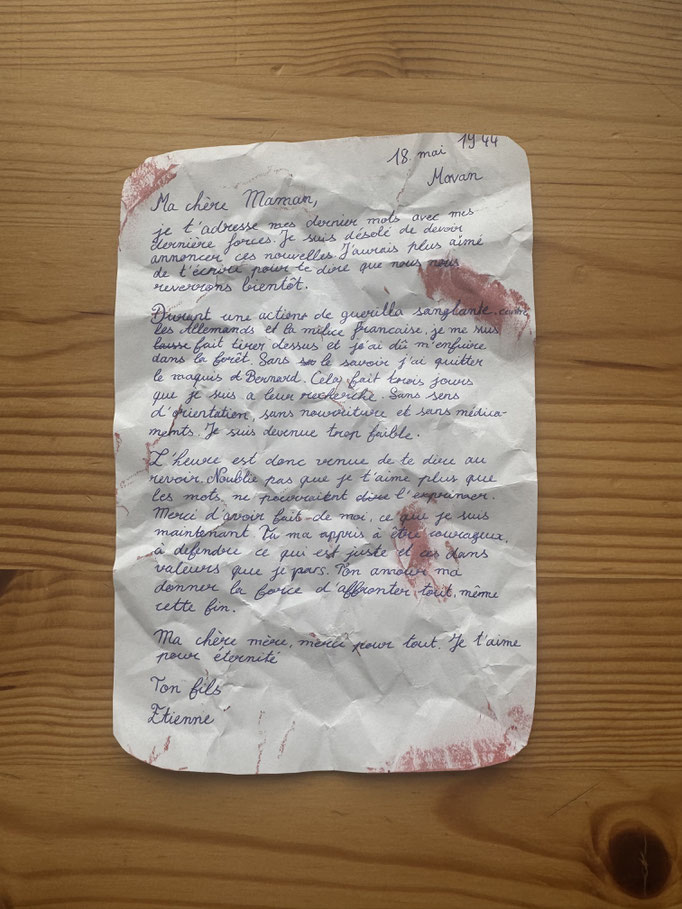 18. mai 1944
Movan
Ma chère Maman,
je t'adresse mes dernier mots avec mes
dernière forces. Je suis désolé de devoir
annoncer ces nouvelles. J'aurais plus aimé
de t'écrire pour te dire que nous nous
reverrons bientôt.
Durant une actions de guerilla sanglante, contre
les Allemands et la milice francaise, je me suis
laisse fait tirer dessus et j'ai dû m'enfuire
dans la forêt. Sans le savoir j'ai quitter
le maquis d Bernard. Cela fait trois jours
que je suis a leur recherche. Sans sens
d'orientation, sans nourriture et sans médica-
ments. Je suis devenue trop faible.
L'heure est donc venue de te dire au
revoir. N'oublie pas que je t'aime plus que
les mots, ne pourraient dire l'exprimer.
Merci d'avoir fait de moi, ce que je suis
maintenant. Tu ma appris à être courageux,
à défendre ce qui est juste et ces dans
valeurs que je pars. Ton amour ma
donner la force d'affronter tout, même
cette fin.
Ma chère mère, merci pour tout. Je t'aime
pour éternité
Ton fils
Etienne